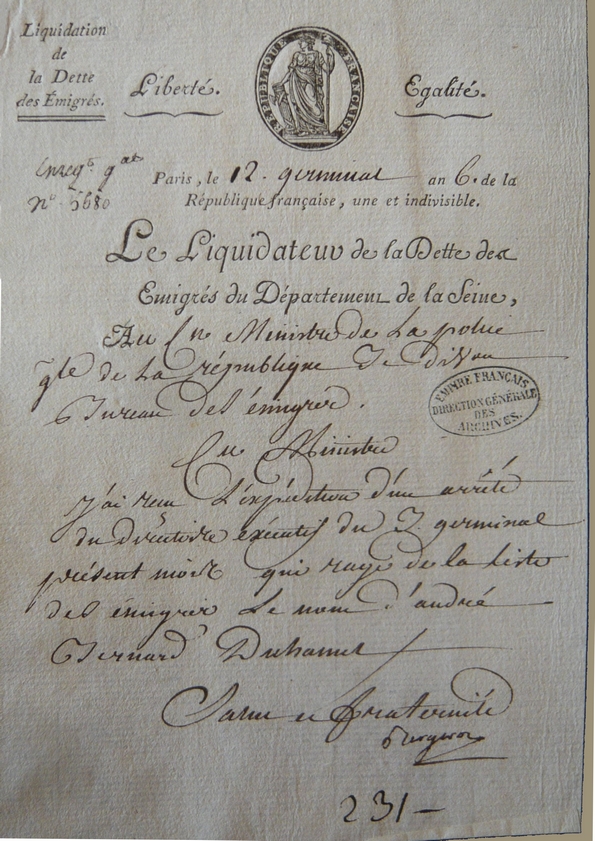 Liquidation
de
la Dette
des Émigrés.
Liberté.
RÉPUBLIQUE FRANÇAISE
Egalité.
Enreg.t g.al
n.o 5680
Paris, le 12. germinal an 6. de la
République française, une et indivisible.
Le Liquidateur de la Dette des
Emigrés du Département de la Seine,
Au C.en Ministre de la police
g.le de la république
Bureau des émigrés.
EMPIRE FRANÇAIS
DIRECTION GÉNÉRALE
DES
ARCHIVES.
C.en Ministre
J'ai reçu L'expédition d'un arrêté
du directoire exécutif du 3. germinal
présent mois qui raye de la liste
des émigrés Le nom d'andré
Bernard Duhamel
Salut et fraternité
231-